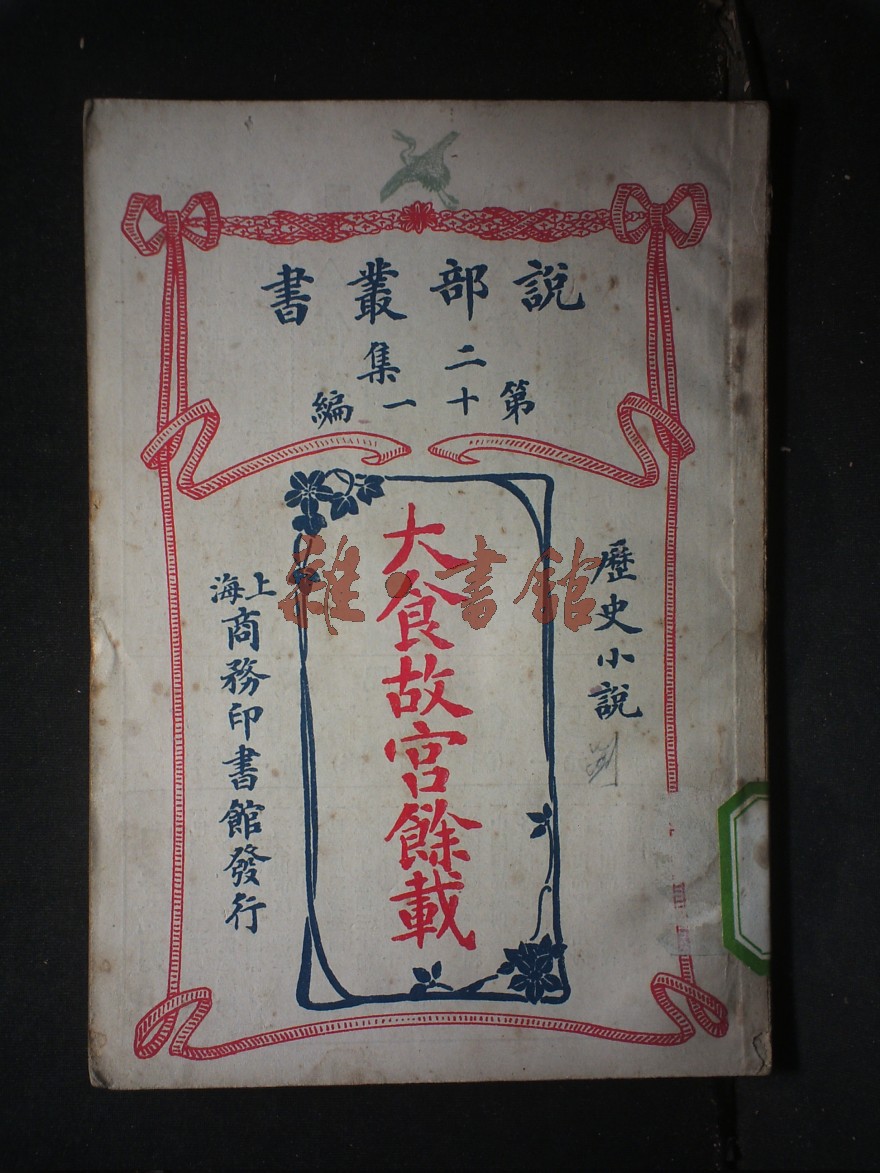 說部叢書
二集
第十一編
歷史小說
大食故宮餘載
上海
商務印書館發行
雜·書館